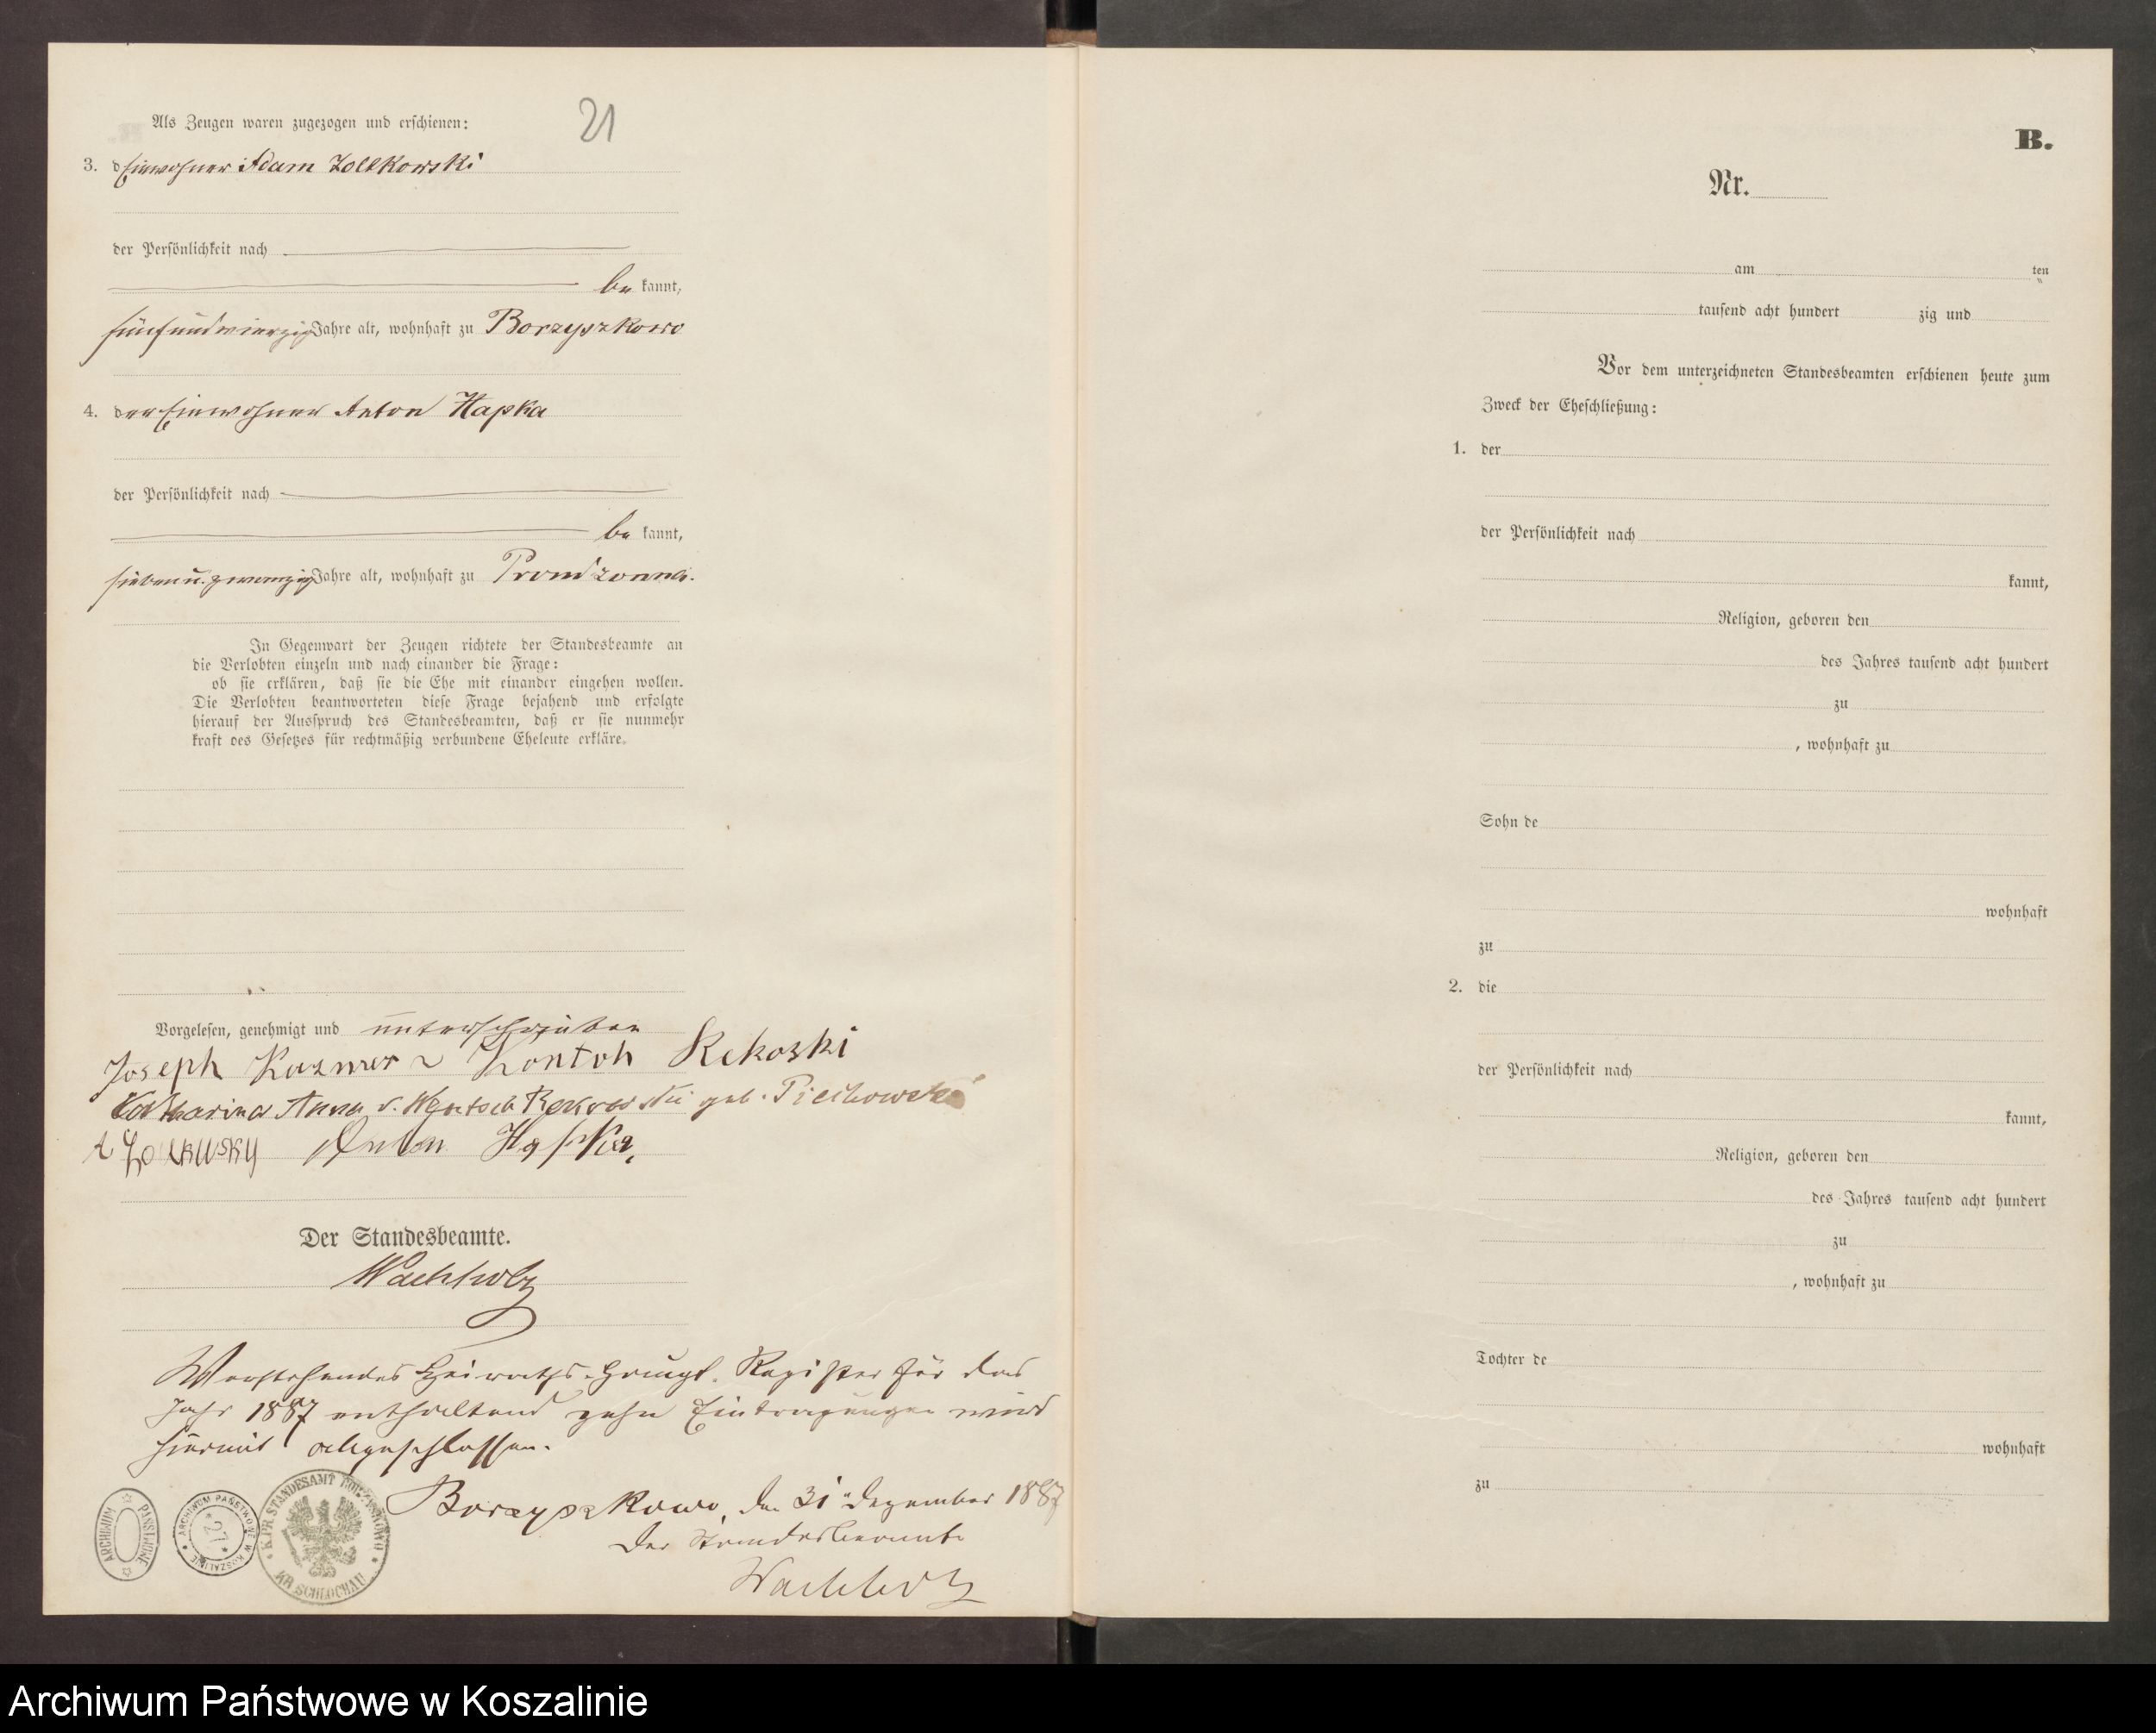 21
Als Zeugen waren zugezogen und erschienen:
3. d Einwohner Adam Zollkowski
der Persönlichkeit nach
be kannt,
fünfundvierzig Jahre alt, wohnhaft zu Borzyszkowo
4. der Einwohner Anton Hapka
der Persönlichkeit nach
be kannt,
sieben u. zwanzig Jahre alt, wohnhaft zu Prondzonna.
In Gegenwart der Zeugen richtete der Standesbeamte an
die Verlobten einzeln und nach einander die Frage:
ob sie erklären, daß sie die Ehe mit einander eingehen wollen.
Die Verlobten beantworteten diese Frage bejahend und erfolgte
hierauf der Ausspruch des Standesbeamten, daß er sie nunmehr
kraft des Gesetzes für rechtmäßig verbundene Eheleute erkläre.
Vorgelesen, genehmigt und unterschrieben
Joseph Kazmer Rekoski
Katharina Anna v. Wentoch Rekowski geb. Piechowski
Anton Hapka,
Der Standesbeamte.
Wachholz
Vorstehendes Heiraths-Haupt-Register für das
Jahr 1887 enthaltend zehn Eintragungen wird
hiermit abgeschlossen.
Borzyszkowo, den 31 Dezember 1887
Der Standesbeamte
Wachholz
ARCHIWUM PAŃSTWOWE
ARCHIWUM PAŃSTWOWE W KOSZALINIE
27
K. PR. STANDESAMT BORZYSZKOWO
KR SCHLOCHAU
B.
Nr.
am ten
tausend acht hundert zig und
Vor dem unterzeichneten Standesbeamten erschienen heute zum
Zweck der Eheschließung:
1. der
der Persönlichkeit nach
kannt,
Religion, geboren den
des Jahres tausend acht hundert
zu
, wohnhaft zu
Sohn de
wohnhaft
zu
2. die
der Persönlichkeit nach
kannt,
Religion, geboren den
des Jahres tausend acht hundert
zu
, wohnhaft zu
Tochter de
wohnhaft
zu
Archiwum Państwowe w Koszalinie